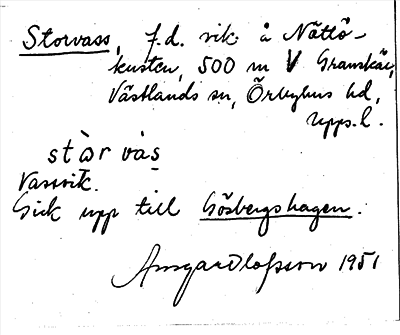 Storvass, f.d. vik å Nättö-
kusten, 500 m V Granskär,
Västlands sn, Örbyhus hd,
Upps. l.
stɷ̀r vàs̩
Vassvik.
Gick upp till Gåsbergshagen.
Ansgar Olofsson 1951